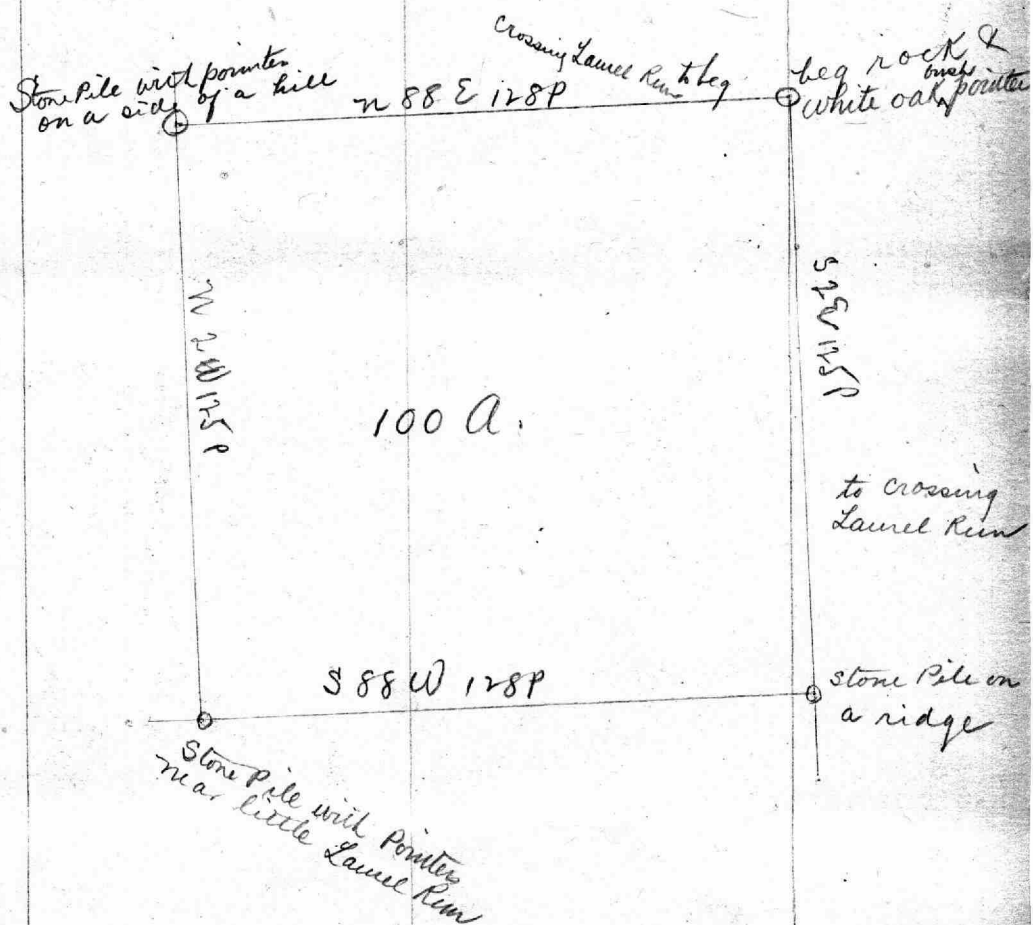 Stone Pile with pointers
on a side of a hill
N 88 E 128P
Crossing Laurel Run to beg
beg rock &
white oak bush pointer
S 2 E 125P
N 2 W 125P
100 A.
to crossing
Laurel Run
S 88 W 128P
stone Pile on
a ridge
Stone pile with Pointers
near little Laurel Run